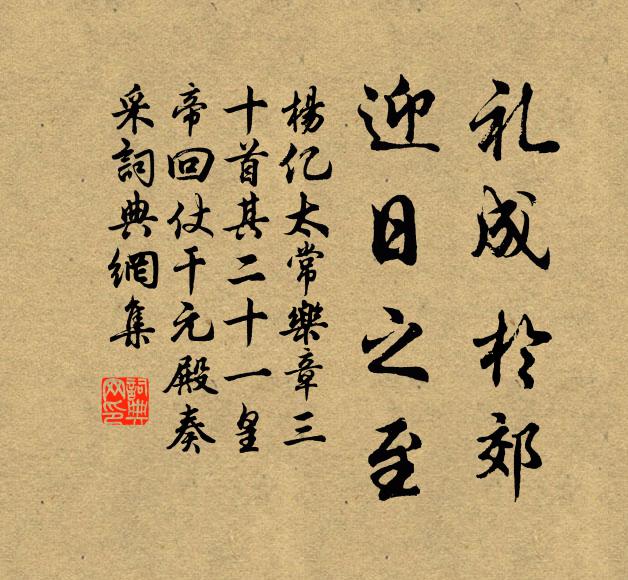 礼成於郊
迎日之至
楊亿太常樂章三
十首其二十一皇
帝回仗干元殿奏
采詞典網集
詞典网印